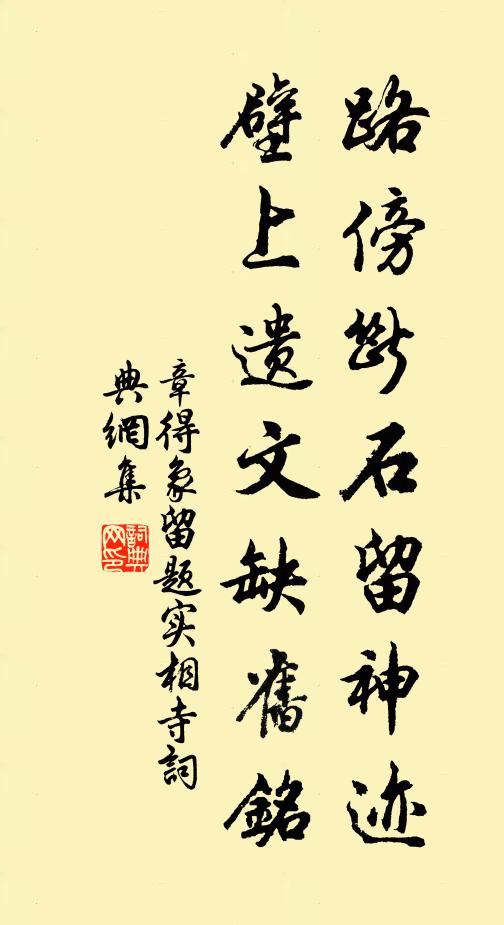 路傍断石留神迹
壁上遗文缺舊銘
章得象留题实相寺詞
典網集
詞典网印